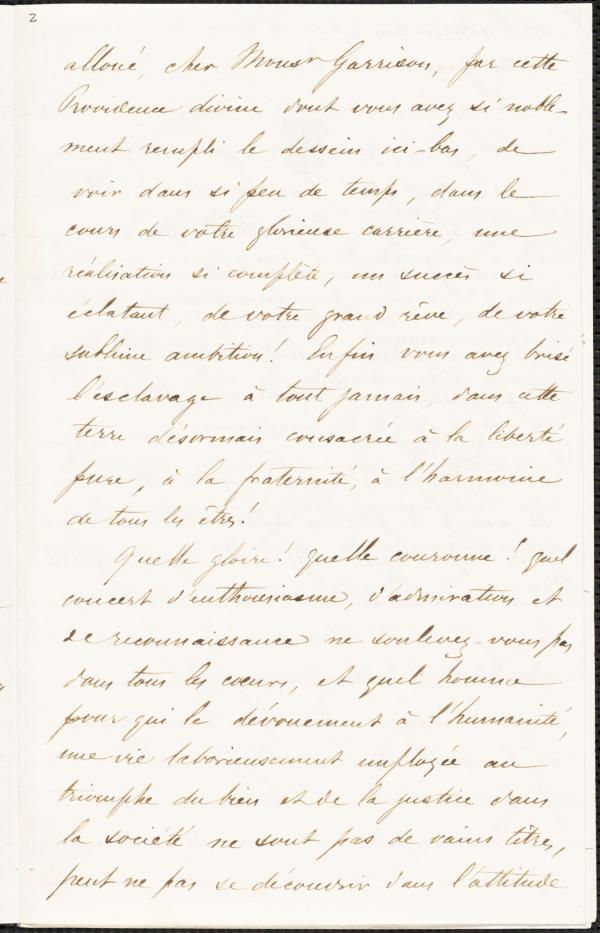 2
alloué, cher Monsr Garrison, par cette
Providence divine dont vous avez si noble-
ment rempli le dessein ici-bas, de
voir dans si peu de temps, dans le
cours de votre glorieuse carrière, une
réalisation si complète, un succès si
éclatant, de votre grand rêve, de votre
sublime ambition! Enfin vous avez brisé
l'esclavage à tout jamais, dans cette
terre désormais consacrée à la liberté
pure, à la fraternité, à l'harmonie
de tous les êtres!
Quelle gloire! quelle couronne! quel
concert d'enthousiasme, d'admiration et
de reconnaissance ne soulevez-vous pas
dans tous les cœurs, et quel homme
pour qui le dévouement à l'humanité,
une vie laborieusement employée au
triomphe du bien et de la justice dans
la société ne sont pas de vains titres,
peut ne pas se découvrir dans l'attitude